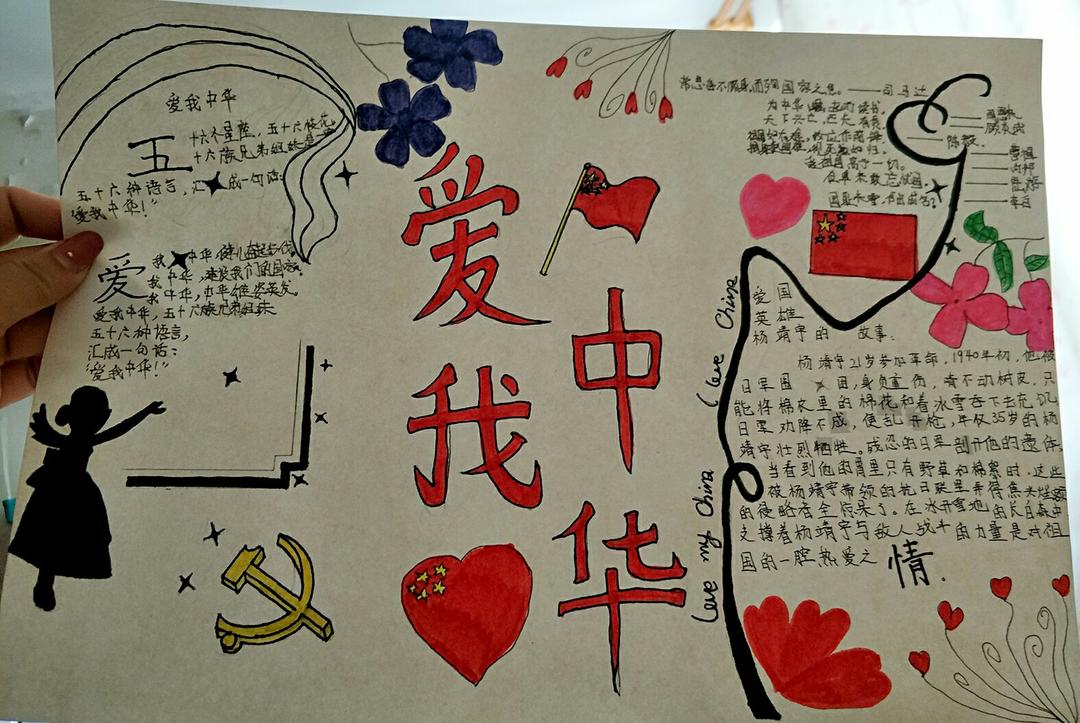 爱我中华
五
十六个星座,五十六枝花,
十六族兄弟姐妹是一
五十六种语言,汇成一句话:
"爱我中华!"
爱
我中华,健儿奋起步伐,
我中华,建设我们的国家,
我中华,中华雄姿英发。
爱我中华,五十六族兄弟姐妹
五十六种语言,
汇成一句话:
"爱我中华!"
爱我
中华
常思奋不顾身,而殉国家之急。——司马迁
天下兴亡,匹夫有责。
陈毅
曹植
李白
I love China
love my China
爱国
英雄
杨靖宇的故事:
杨靖宇21岁参加革命,1940年初,他被
日军围 团,身负重伤,啃不动树皮,只
能将棉衣里的棉花和着冰雪吞下去充饥
日寇劝降不成,便乱开枪,年仅35岁的杨
靖宇壮烈牺牲。残忍的日军剖开他的遗体,
当看到他的胃里只有野草和棉絮时,这些
被杨靖宇带领的抗日联军弄得焦头烂额
的侵略者全惊呆了。在冰天雪地的长白森中
支撑着杨靖宇与敌人战斗的力量是对祖
国的一腔热爱之情.